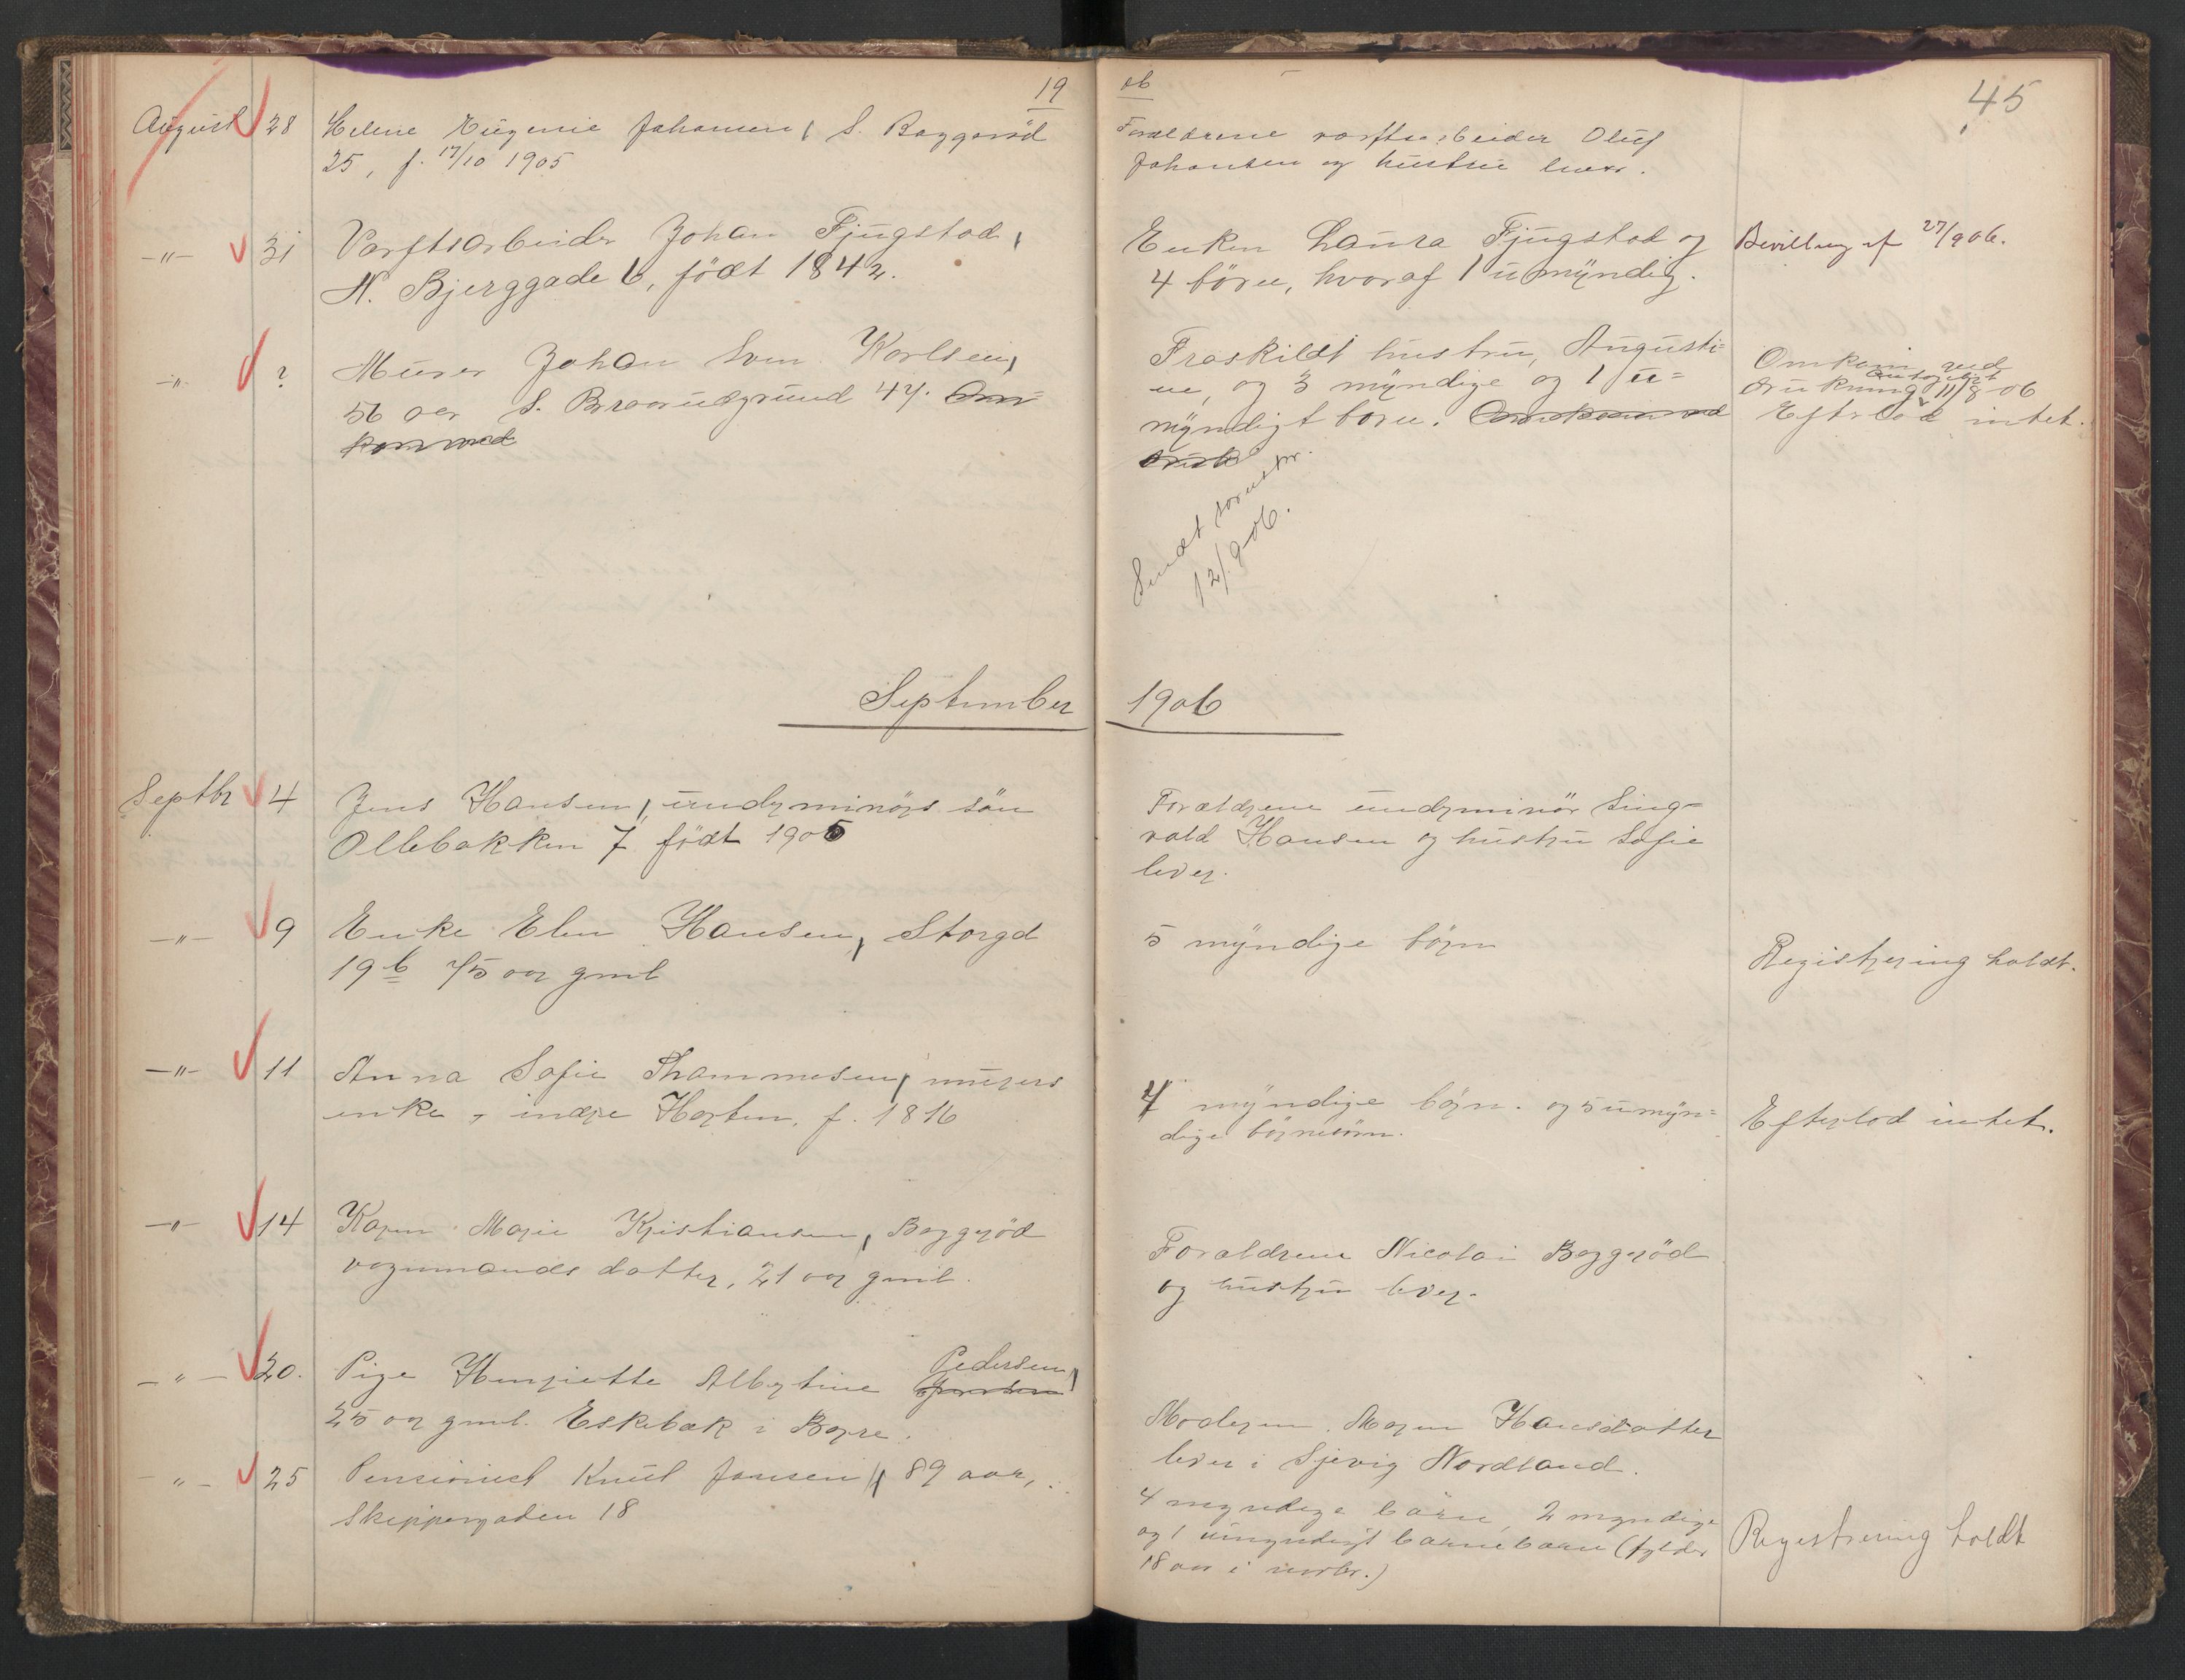 19 06
45
August 28 Helene Eugenie Johansen, S. Baggerød
25, f. 17/10 1905
Forældrene verftsarbeider Oluf
Johansen og hustru lever.
-"- 31 Verftsarbeider Johan Fjugstad,
N. Bjerggade 6, født 1842.
Enken Laura Fjugstad og
4 børn, hvoraf 1 umyndig.
Bevilling af 27/9 06.
-"- ? Murer Johan Sven Karlsen,
56 aar S. Braarudgrund 44. Om-
kom ved
Fraskildt hustru, Augusti-
ne, og 3 myndige og 1 u-
myndigt børn. Omkom ved
druk
Omkom ved
antageligt
drukning 11/8 06
Efterlod intet.
Sendt
12/9 06.
September 1906
Septbr 4 Jens Hansen, underminørs søn
Ollebakken 7 født 1905
Forældrene underminør Sing-
vald Hansen og hustru Sofie
lever.
-"- 9 Enke Elen Hansen, Storgd
19b 75 aar gml
5 myndige børn
Registrering holdt.
-"- 11 Anna Sofie Thommesen, murers
enke, indre Horten, f. 1816
4 myndige børn. og 5 umyn-
dige børnebørn.
Efterlod intet.
-"- 14 Karen Marie Kristiansen, Baggerød
vognmands datter, 21 aar gml.
Forældrene Nicolai Baggerød
og hustru lever.
-"- 20. Pige Henriette Albertine Pedersen,
25 aar gml. Eskebæk i Borre.
Moderen Maren Hansdatter
lever i Sjevig Nordland.
-"- 25 Pensionist Knut Jansen, 89 aar,
Skippergaden 18
4 myndige børn, 2 myndige
og 1 umyndigt barnebarn (fylder
18 aar i novbr.)
Registrering holdt